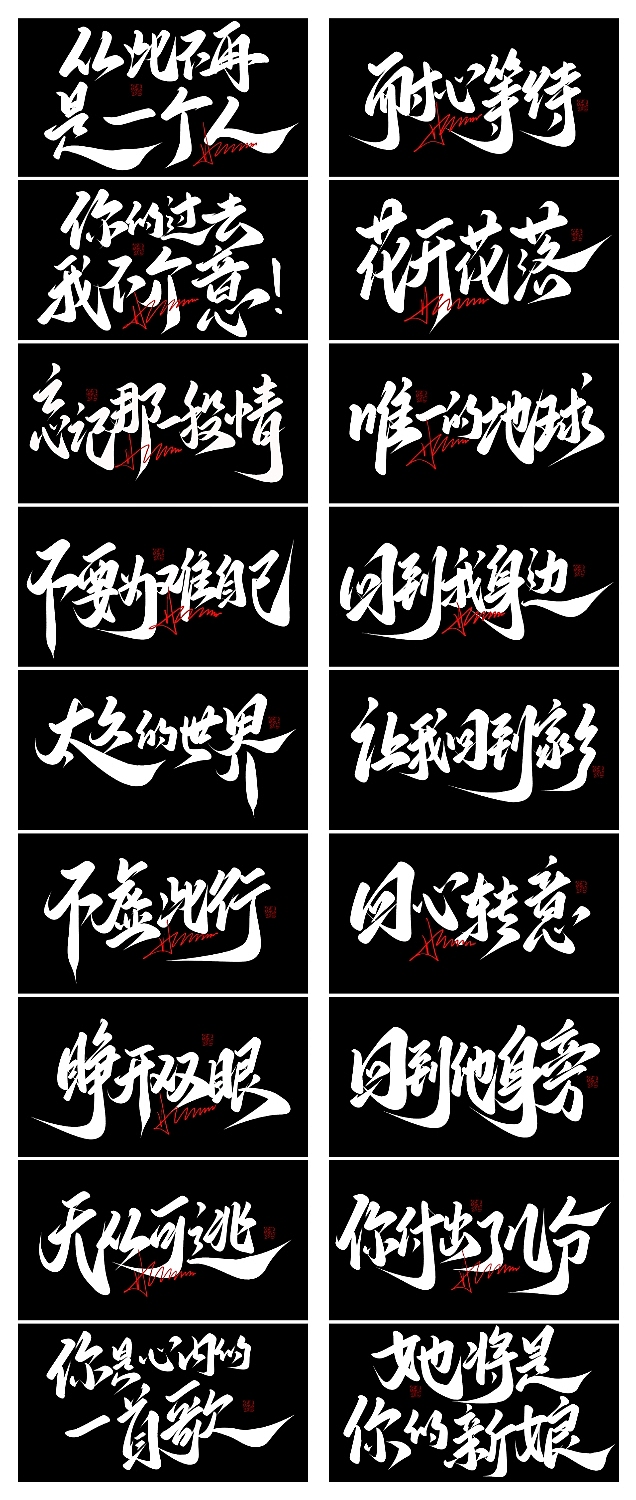 从此不再
是一个人
耐心等待
你的过去
我不介意!
花开花落
忘记那一段情
唯一的地球
不要为难自己
回到我身边
太久的世界
让我回到家乡
不虚此行
回心转意
睁开双眼
回到他身旁
无从可逃
你付出了几分
你是心内的
一首歌
她将是
你的新娘